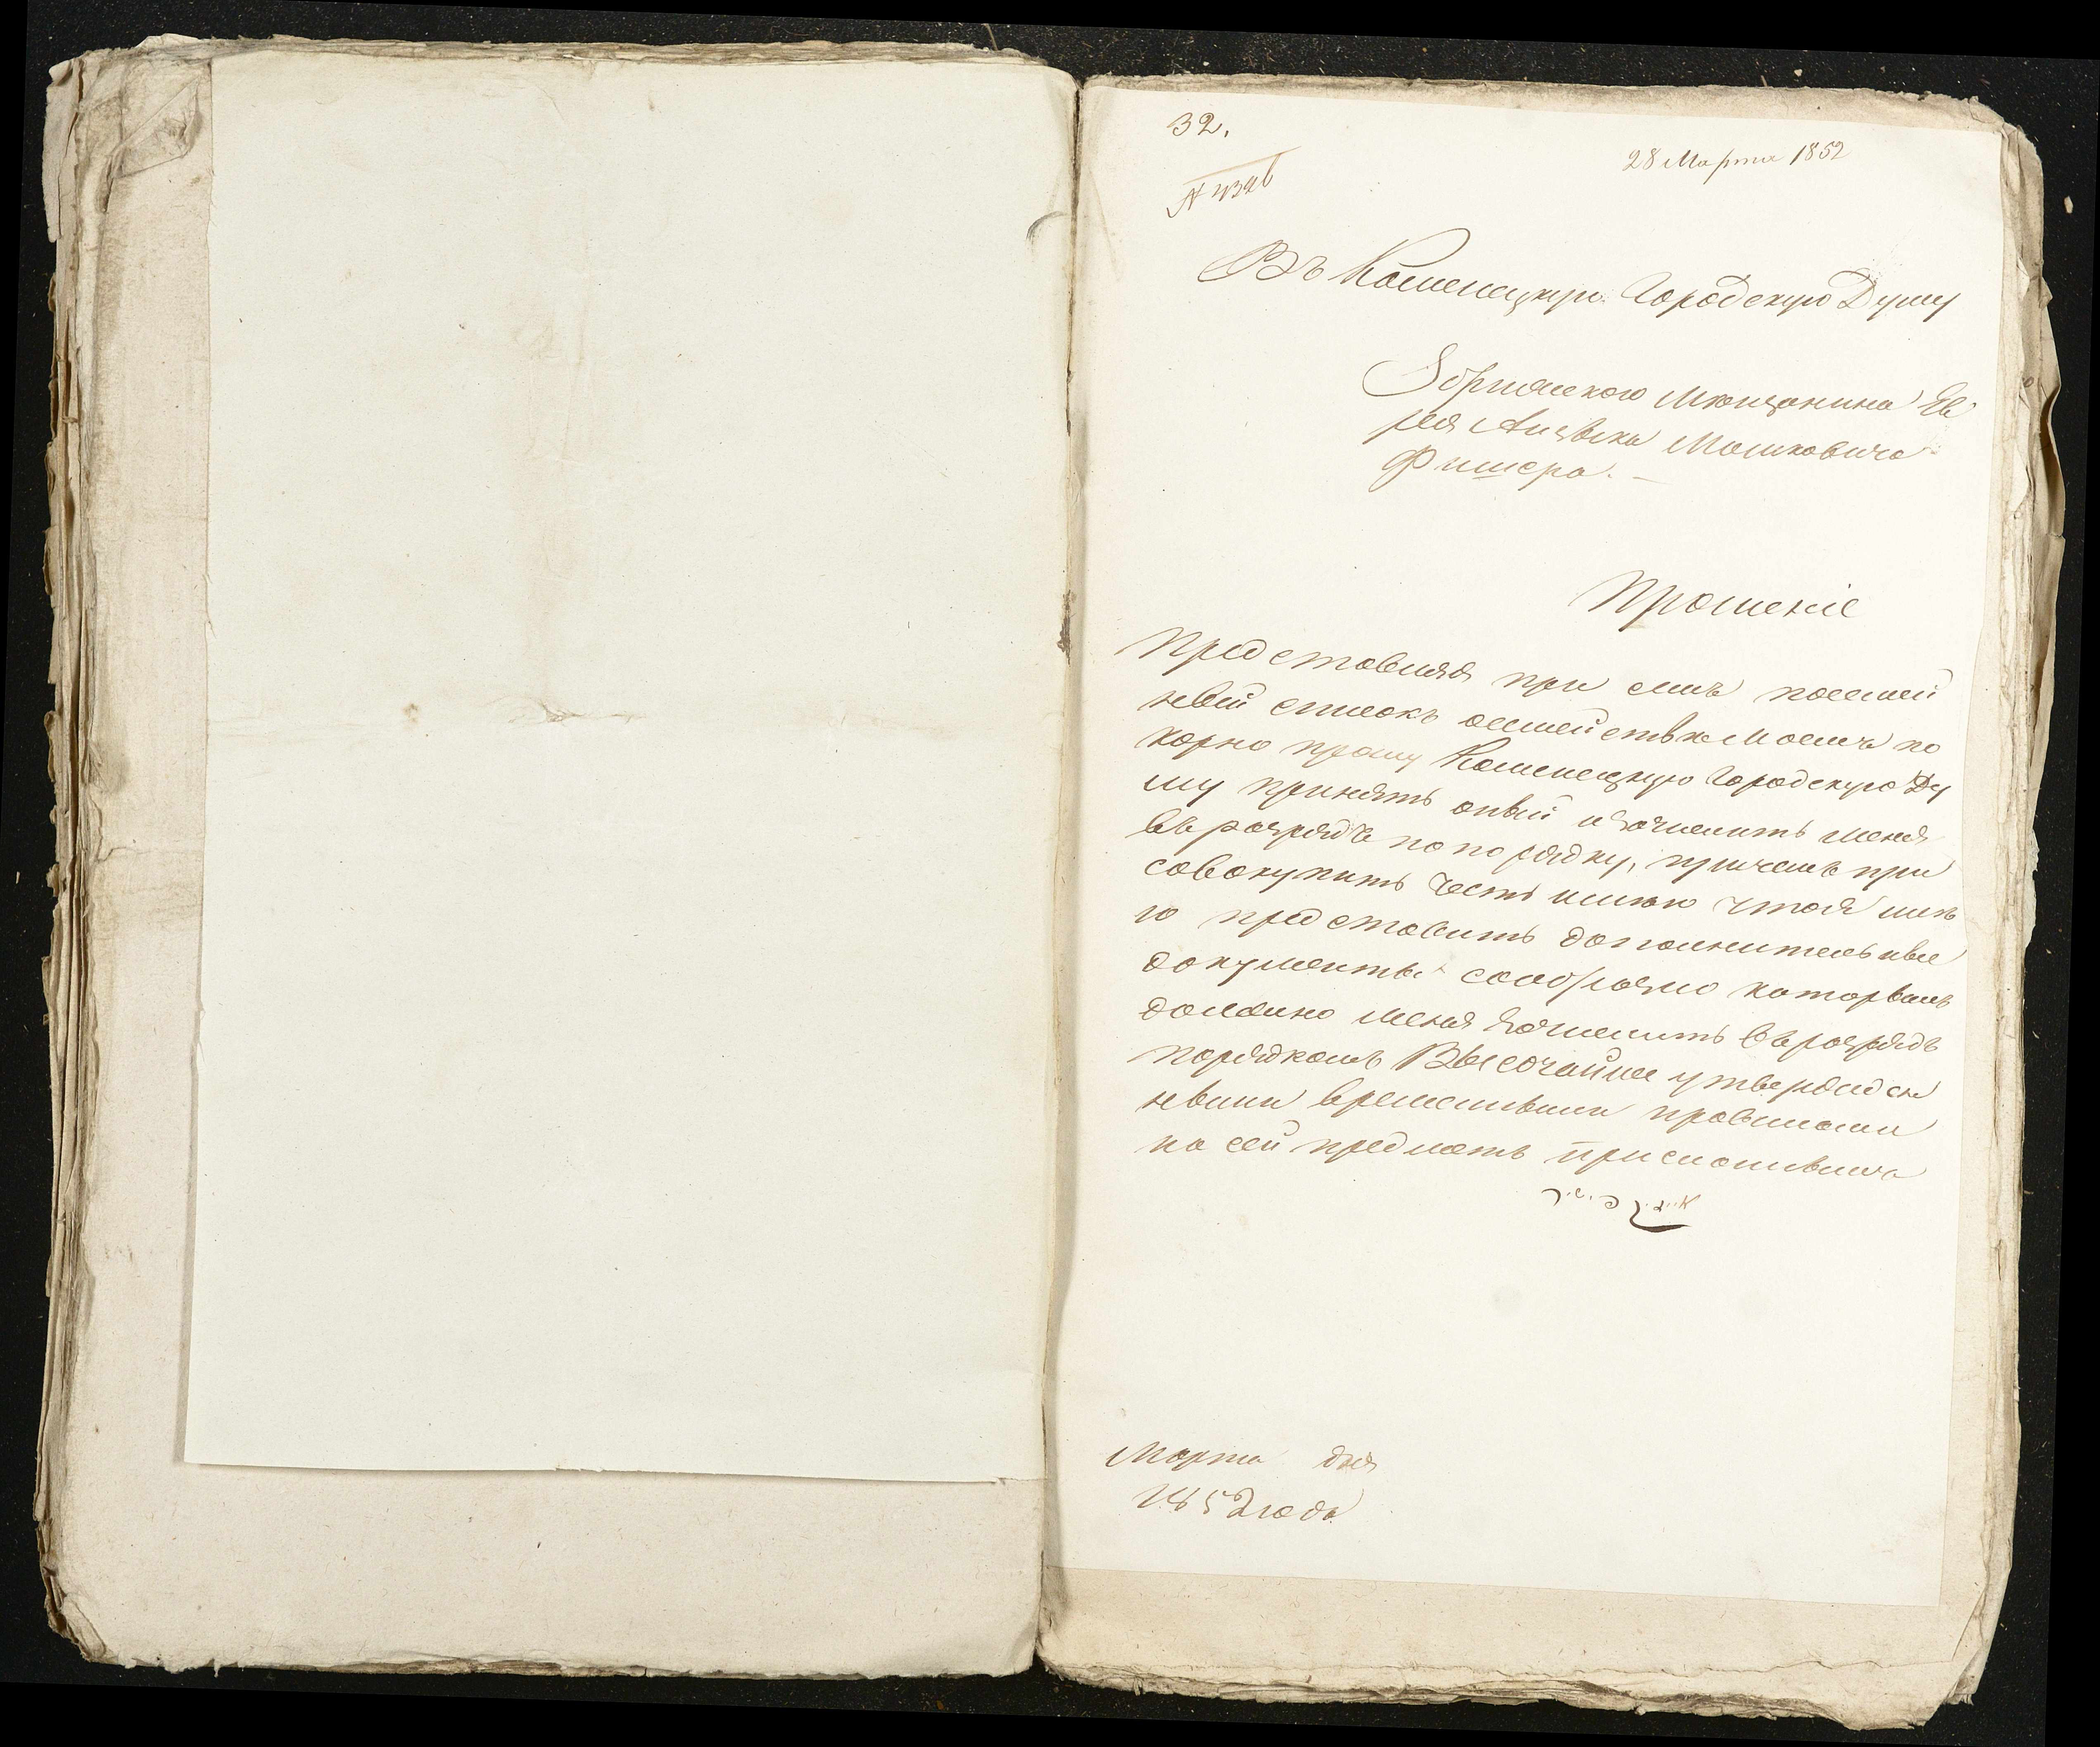 32.
28 Марта 1852
Въ Каменецкую Городскую Думу
Збрижского мѣщанина Ев
рея Мошковича
Фишера. —
Прошеніе
Представляя при семъ посемей
ный списокъ осемействѣ моемъ по
корно прошу Каменецкую Городскую Ду
му принять оный изачислить меня
въ разрядъ по порядку, причемъ при
совокупить честь имѣю что я имѣ
ю представить дополнительные
документы сообразно которымъ
должно меня зачислить въ разрядъ
порядкомъ Высочайше утвержден
ными временными правилами
на сей предметъ
Марта дня
1852 года